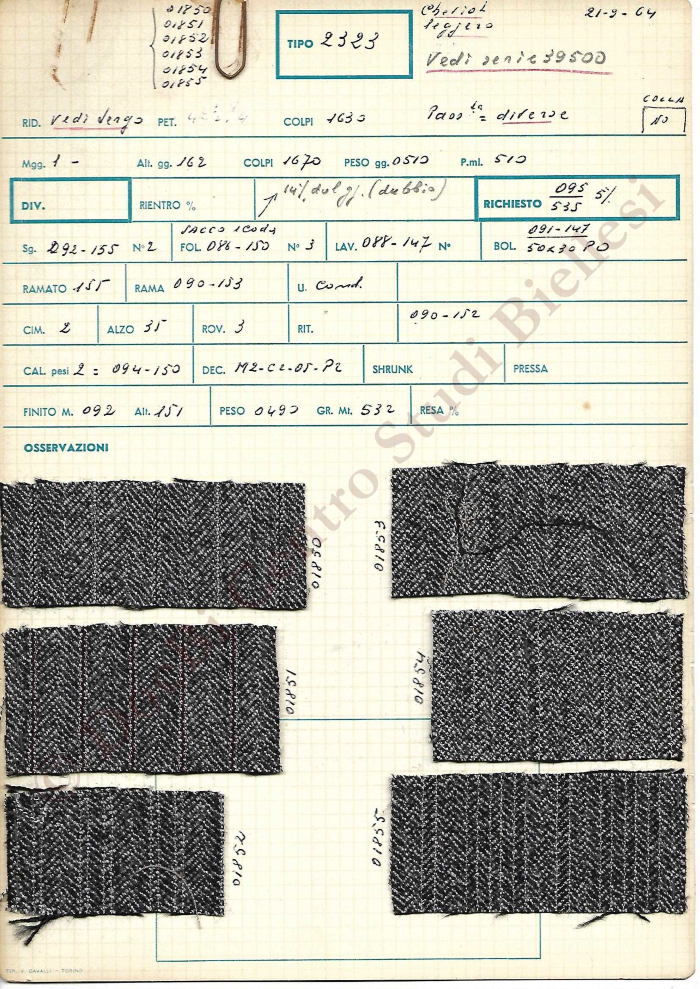 01850
01851
01852
01853
01854
01855
TIPO 2323
Cheviot leggero
21-9-64
Vedi serie 39500
RID. Vedi tergo PET. COLPI 1630 diverse
COLLA
NO
Mgg. 1 - Alt. gg. 162 COLPI 1670 PESO gg. 0510 P.ml. 510
DIV. RIENTRO % (dubbio) RICHIESTO 095 535 5%
Sg. 092-155 N° 2 SACCO FOL. 086-150 N° 3 LAV. 088-147 N° BOL. 091-147 50x30 PO
RAMATO 155 RAMA 090-153 U. cond.
CIM. 2 ALZO 35 ROV. 3 RIT. 090-152
CAL. pesi 2 = 094-150 DEC. M2-C2-05-P2 SHRUNK PRESSA
FINITO M. 092 Alt. 151 PESO 0490 GR. Mt. 532 RESA %
OSSERVAZIONI
01850
01853
01851
01854
01852
01855
TIP. V. CAVALLI - TORINO
Centro Studi Biellesi